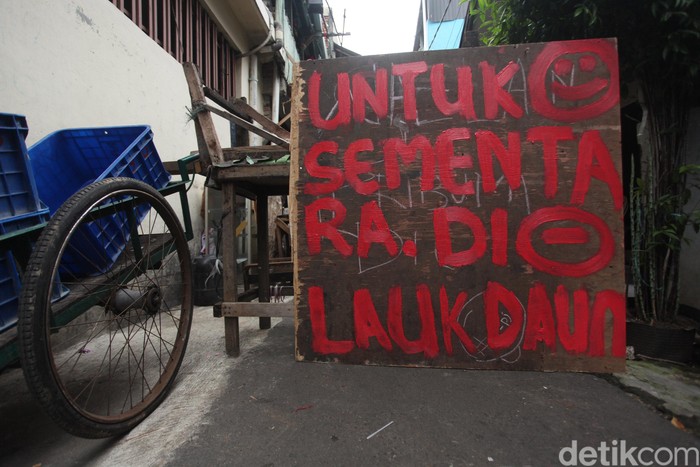 UNTUK
SEMENTA
RA. DI
LAUKDAUN
detikcom